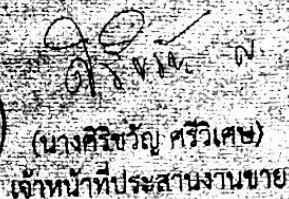 (นางศิริขวัญ ศรีวิเศษ)
เจ้าหน้าที่ประสานงานขาย